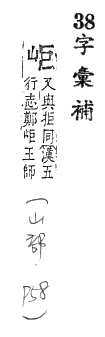 38字彙補
岠
又與拒同漢五
行志鄭岠王師
(山部.P58)